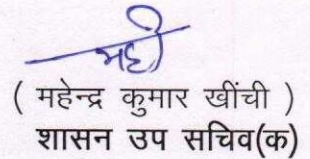 ( महेन्द्र कुमार खींची )
शासन उप सचिव(क)